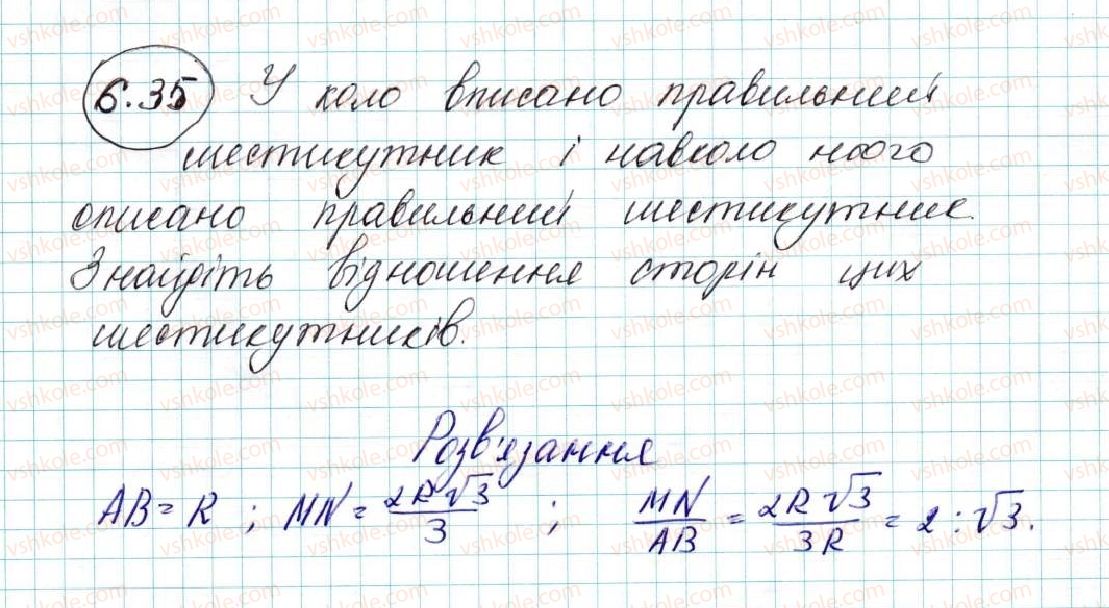 6.35 У коло вписано правильний
шестикутник і навколо нього
описано правильний шестикутник.
Знайдіть відношення сторін цих
шестикутників.
Розв'язання
AB = R ; MN = 2R√3/3 ; MN/AB = 2R√3/3R = 2:√3.